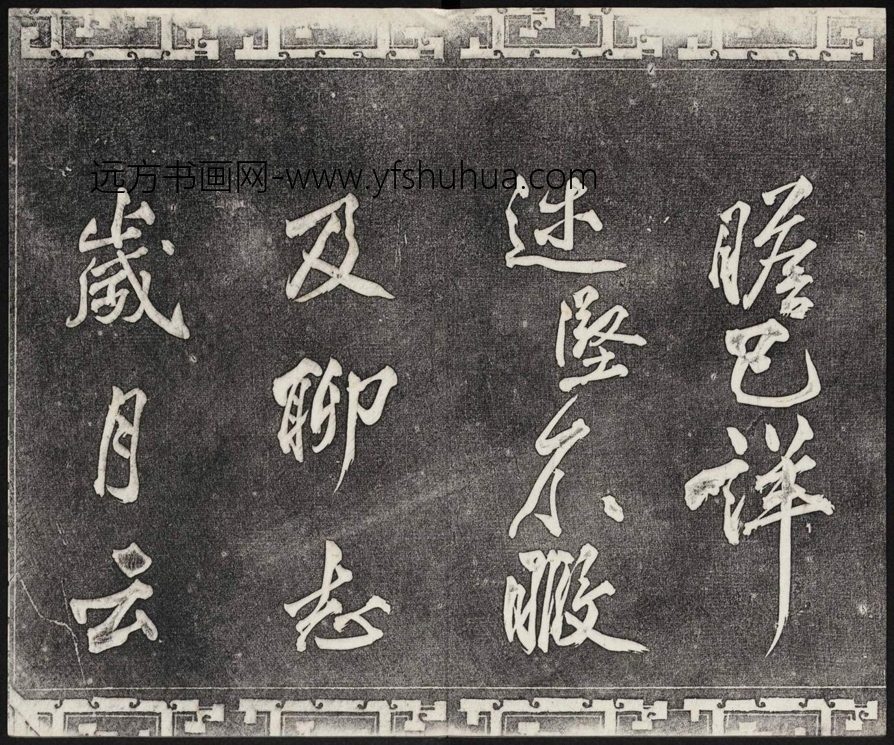 远方书画网-www.yfshuhua.com
瞻已詳
述堅不暇
及聊志
歲月云